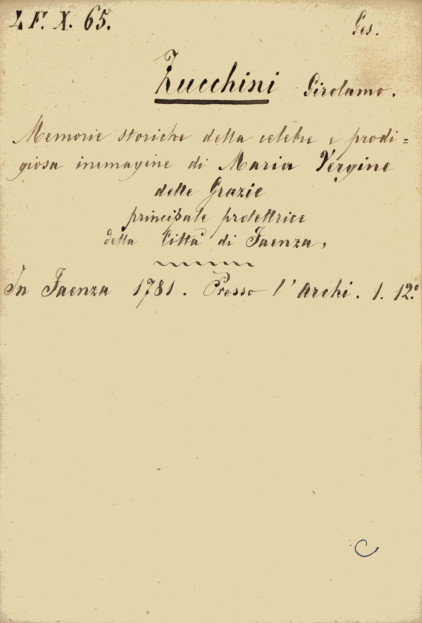 Z F. X. 65.
Ges.
Zucchini Girolamo.
Memorie storiche della celebre e prodi=
giosa immagine di Maria Vergine
delle Grazie
principale protettrice
della Città di Faenza,
In Faenza 1781. Presso l'Archi. 1. 12.°
C